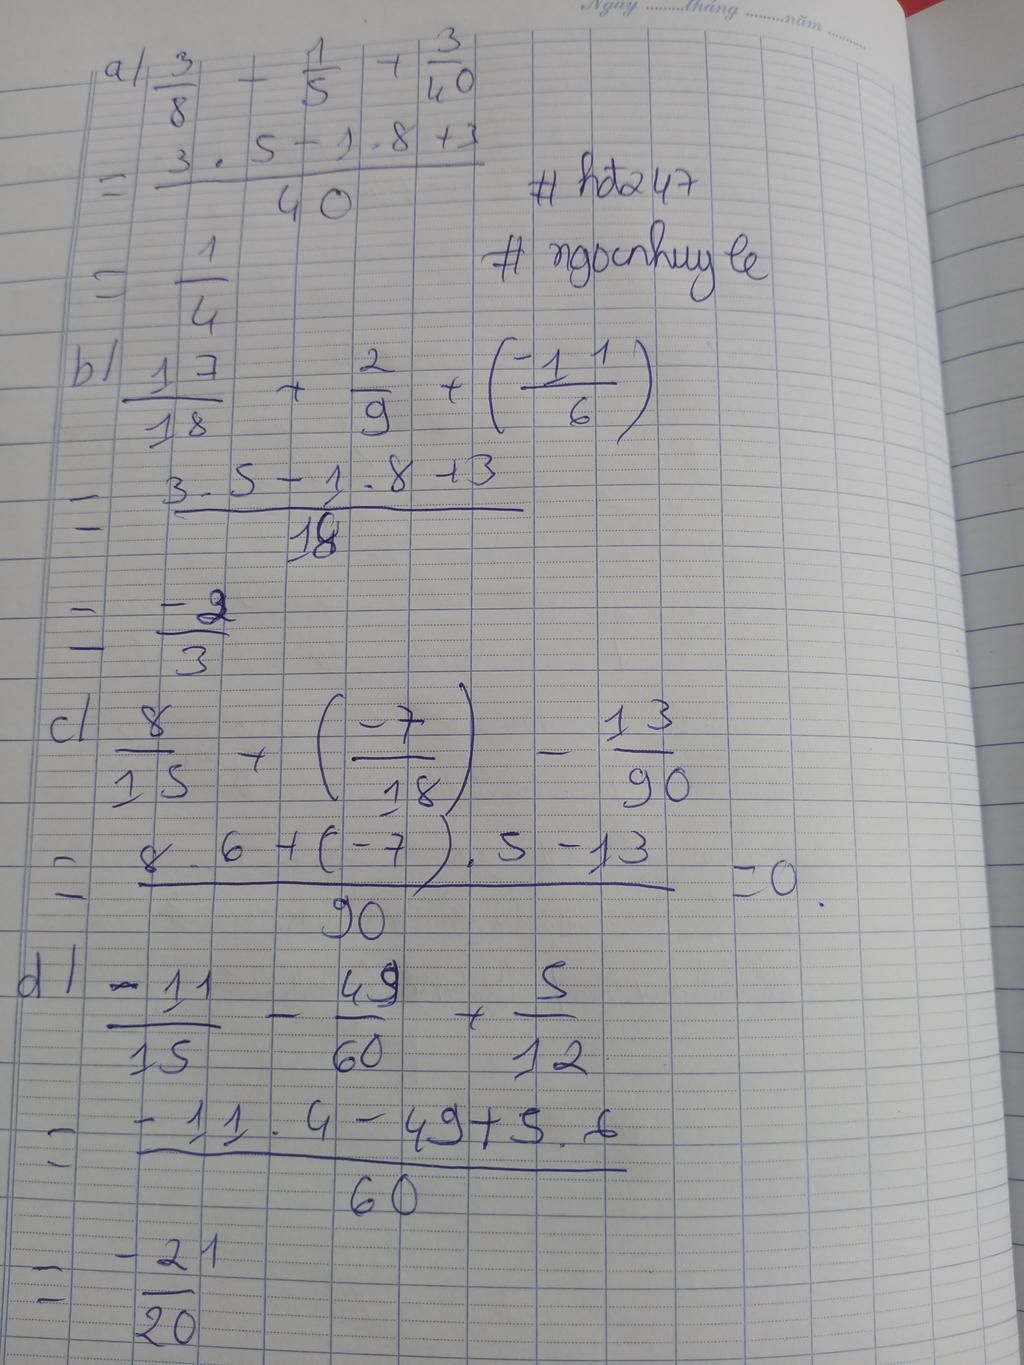 Ngày ........tháng ........năm ........
a/ 3/8 - 1/5 + 3/40
= (3 . 5 - 1 . 8 + 3)/40
# hdt247
= 1/4
# ngocnhuyle
b/ 17/18 + 2/9 + (-11/6)
= (3 . 5 - 1 . 8 + 3)/18
= -2/3
c/ 8/15 + (-7/18) - 13/90
= (8 . 6 + (-7) . 5 - 13)/90 = 0.
d/ -11/15 - 49/60 + 5/12
= (-11 . 4 - 49 + 5 .)/60
= -21/20